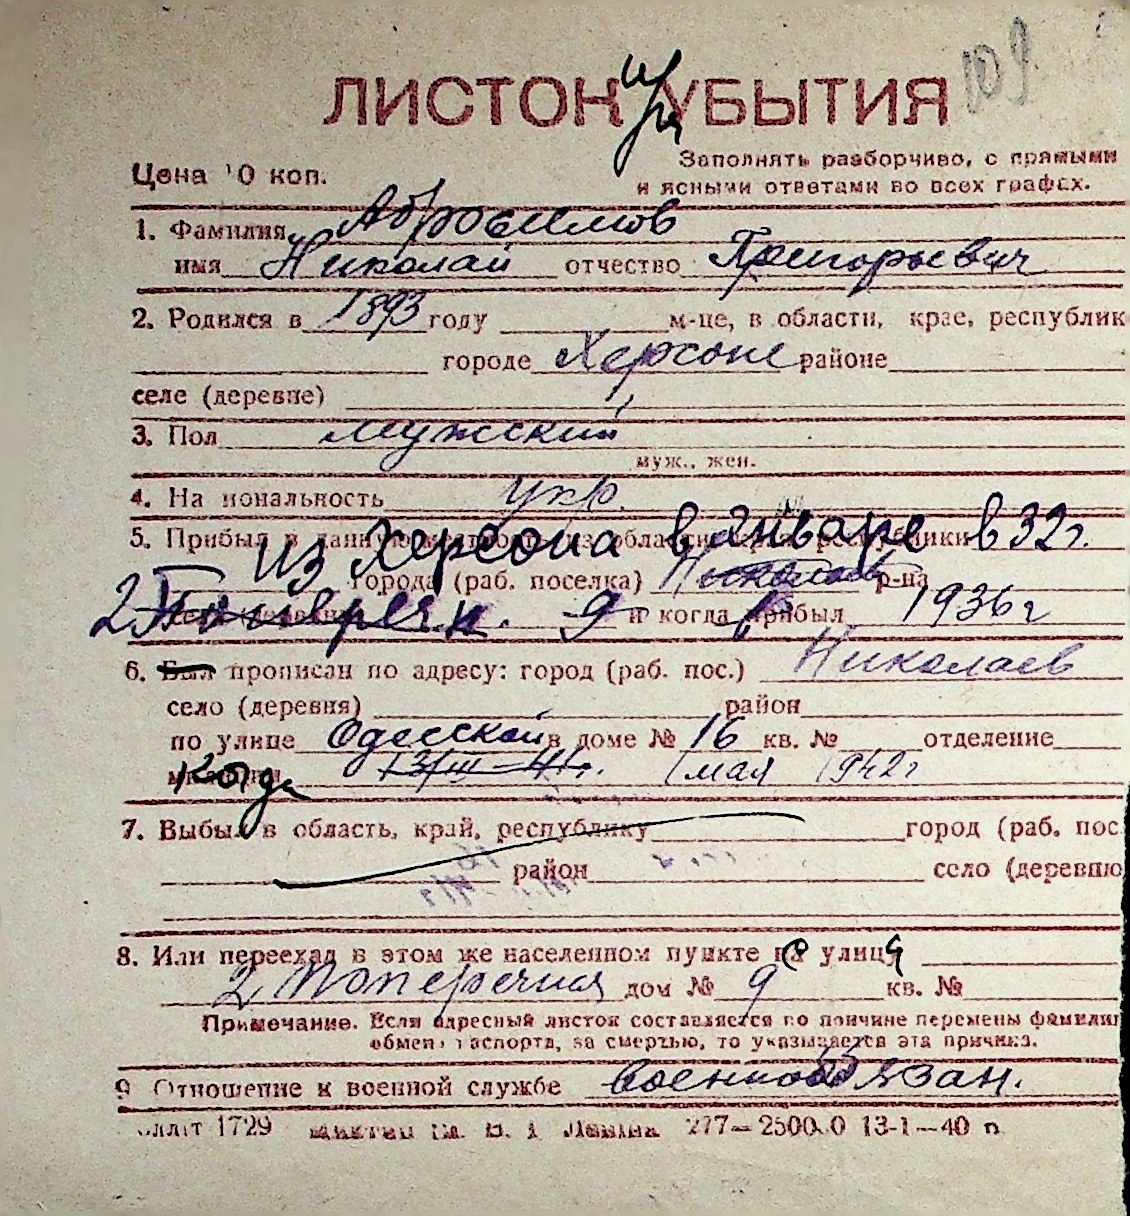 109
ЛИСТОК УБЫТИЯ
Цена 10 коп.
Заполнять разборчиво, с прямыми
и ясными ответами во всех графах.
1. Фамилия Абросимов
имя Николай отчество Григорьевич
2. Родился в 1893 году м-це, в области, крае, республик
городе Херсоне районе
селе (деревне)
3. Пол мужский
муж., жен.
4. Национальность укр.
5. Прибыл в
из Херсона в январе в 32 г.
города (раб. поселка) Николаев р-на
2 Попереч. 9 и когда прибыл 1936 г
6. Был прописан по адресу: город (раб. пос.) Николаев
село (деревня) район
по улице Одесской в доме № 16 кв. № отделение
когда 13/III-41г. 1 мая 1942 г
7. Выбыл в область, край, республику город (раб. пос
район село (деревню
8. Или переехал в этом же населенном пункте с улицы
2 Поперечная дом № 9 кв. №
Примечание. Если адресный листок составляется по причине перемены фамилии
обмена паспорта, за смертью, то указывается эта причина.
9 Отношение к военной службе военнообязан.
1729 277—2500 0 13-1—40 п.